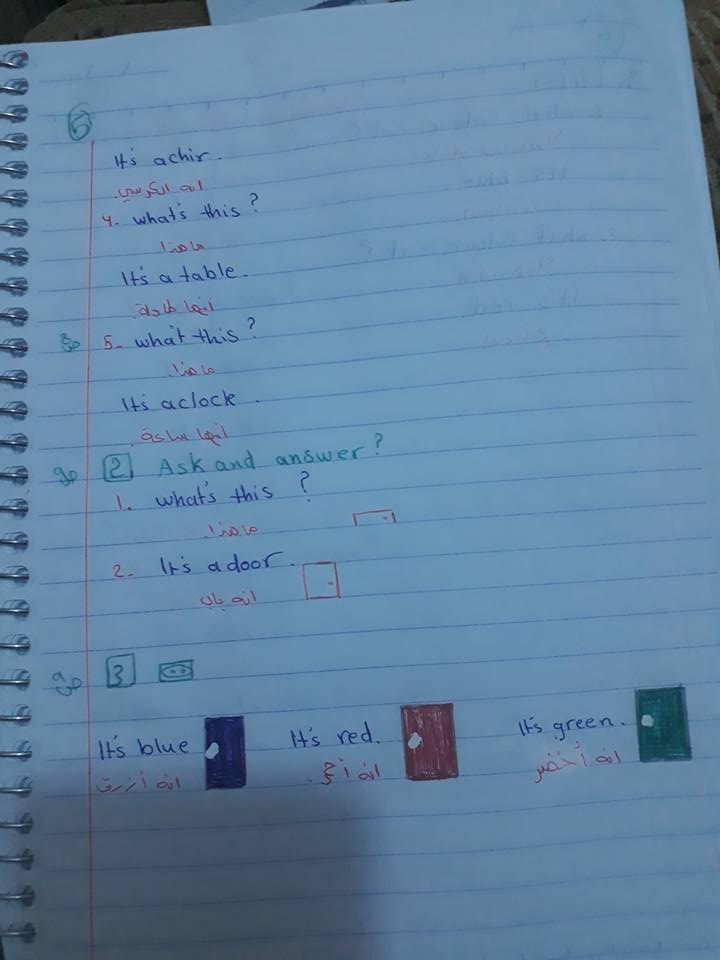 5
It's achir.
انه الكرسي.
4. what's this?
ماهذا
It's a table.
انها طاولة.
5- what this?
ماهذا.
It's aclock.
انها ساعة.
2 Ask and answer?
1. what's this ?
ماهذا.
2. It's a door.
انه باب
3
It's blue It's red. It's green.
انه أزرق انه أحمر. انه أخضر